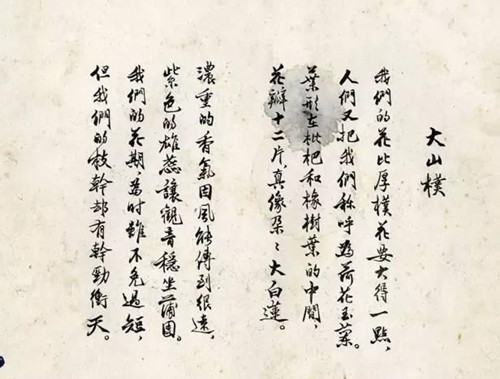 大山樸
我們的花比厚樸花要大得一點，
人們又把我們称呼為荷花玉蘭。
葉形在枇杷和橡樹葉的中間，
花瓣十二片真像朵〻大白蓮。
濃重的香氣因風能傳到很遠，
紫色的雄蕊讓觀音穩坐蒲團。
我們的花期為时雖不免過短，
但我們的枝幹却有幹勁衝天。